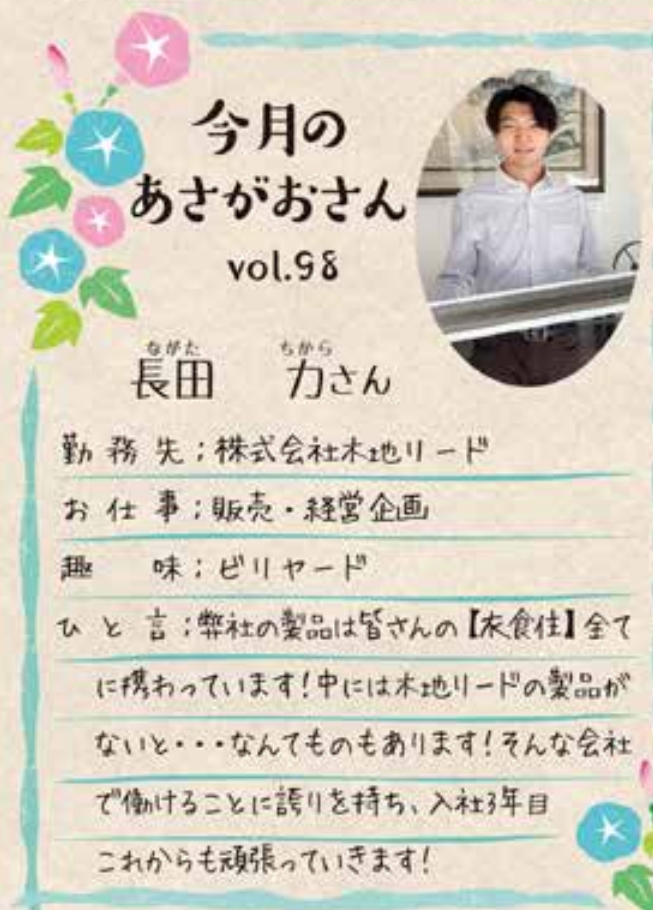 今月の
あさがおさん
vol.98
ながた ちから
長田 力さん
勤務先;株式会社木地リード
お仕事;販売・経営企画
趣味;ビリヤード
ひと言;弊社の製品は皆さんの【衣食住】全て
に携わっています!中には木地リードの製品が
ないと・・・なんてものもあります!そんな会社
で働けることに誇りを持ち、入社3年目
これからも頑張っていきます!